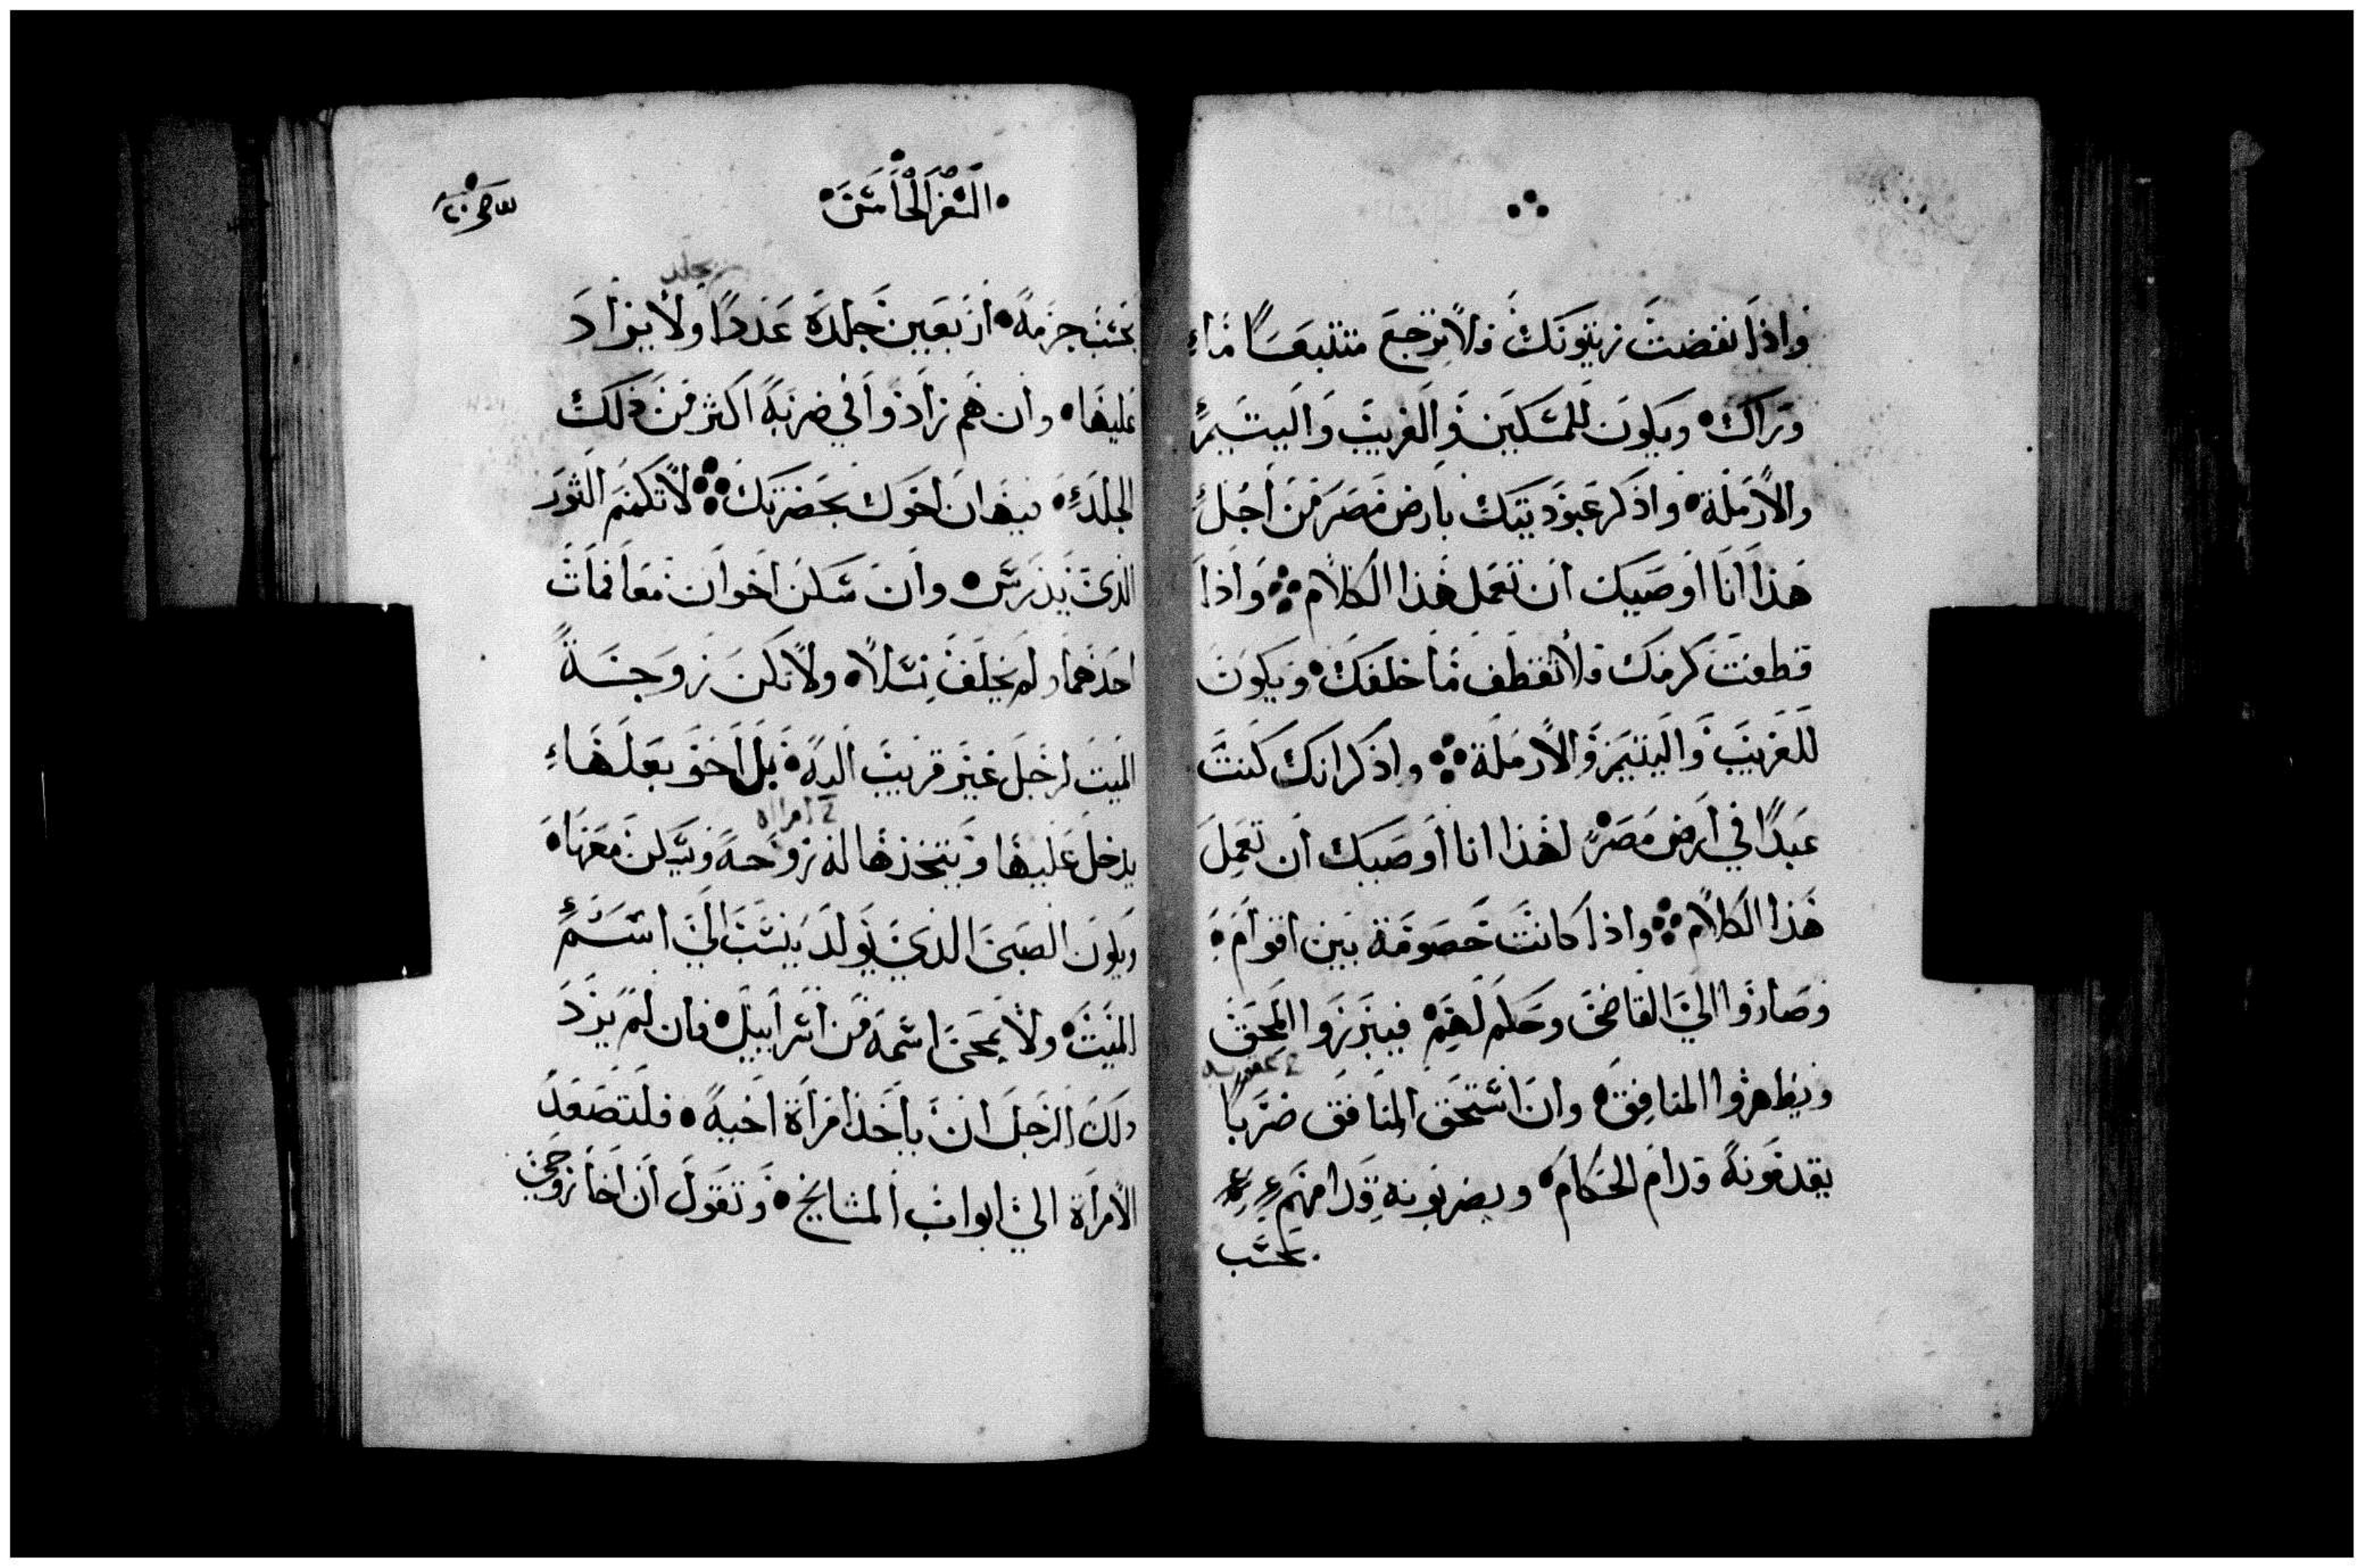 واذا نفضت زيتونك فلا ترجع متتبعًا ما
وراك ويكون للمسكين والغريب واليتيم
والارملة واذكر عبوديتك بارض مصر من اجل
هذا انا اوصيك ان تعمل هذا الكلام واذا
قطفت كرمك فلا تقطف ما خلفك ويكون
للغريب واليتيم والارملة واذكر انك كنت
عبدًا في ارض مصر لهذا انا اوصيك ان تعمل
هذا الكلام واذا كانت خصومة بين اقوام
وصاروا الي القاضى وحكم لهم فيبرزوا المحق
ويظهروا المنافق وان استحق المنافق ضربًا
يقدمونه قدام الحكام ويضربونه قدامهم
بحسب
السفر الخامس
بحسب جرمه اربعين جلدة عددًا ولا يزاد
عليها وان هم زادوا في ضربه اكثر من ذلك
الجلد فيهان اخوك بحضرتك لا تكمم الثور
الذى يدرس وان سكن اخوان معا فمات
احدهما ولم يخلف نسلاً ولا تكن زوجة
الميت لرجل غير قريب اليه بل اخو بعلها
يدخل عليها ويتخذها له زوجة ويسكن معها
امراه
ويكون الصبى الذي يولد ينسب الي اسم
الميت ولا يمحى اسمه من اسراييل فان لم يرد
ذلك الرجل ان ياخذ امراة اخيه فلتصعد
الامراة الي ابواب المشايخ وتقول ان اخا زوجي